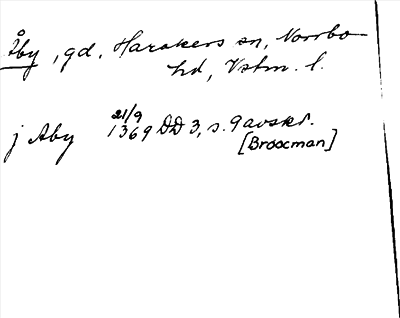 Åby, gd, Harakers sn, Norrbo
hd, Vstm. l.
21/9
j Aby 1369 DD 3, s. 9 avskr.
[Broocman]